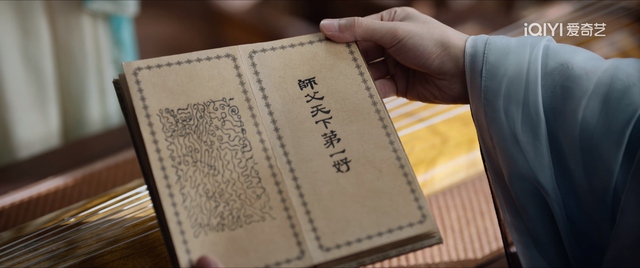 iQIYI 爱奇艺
師父天下第一好